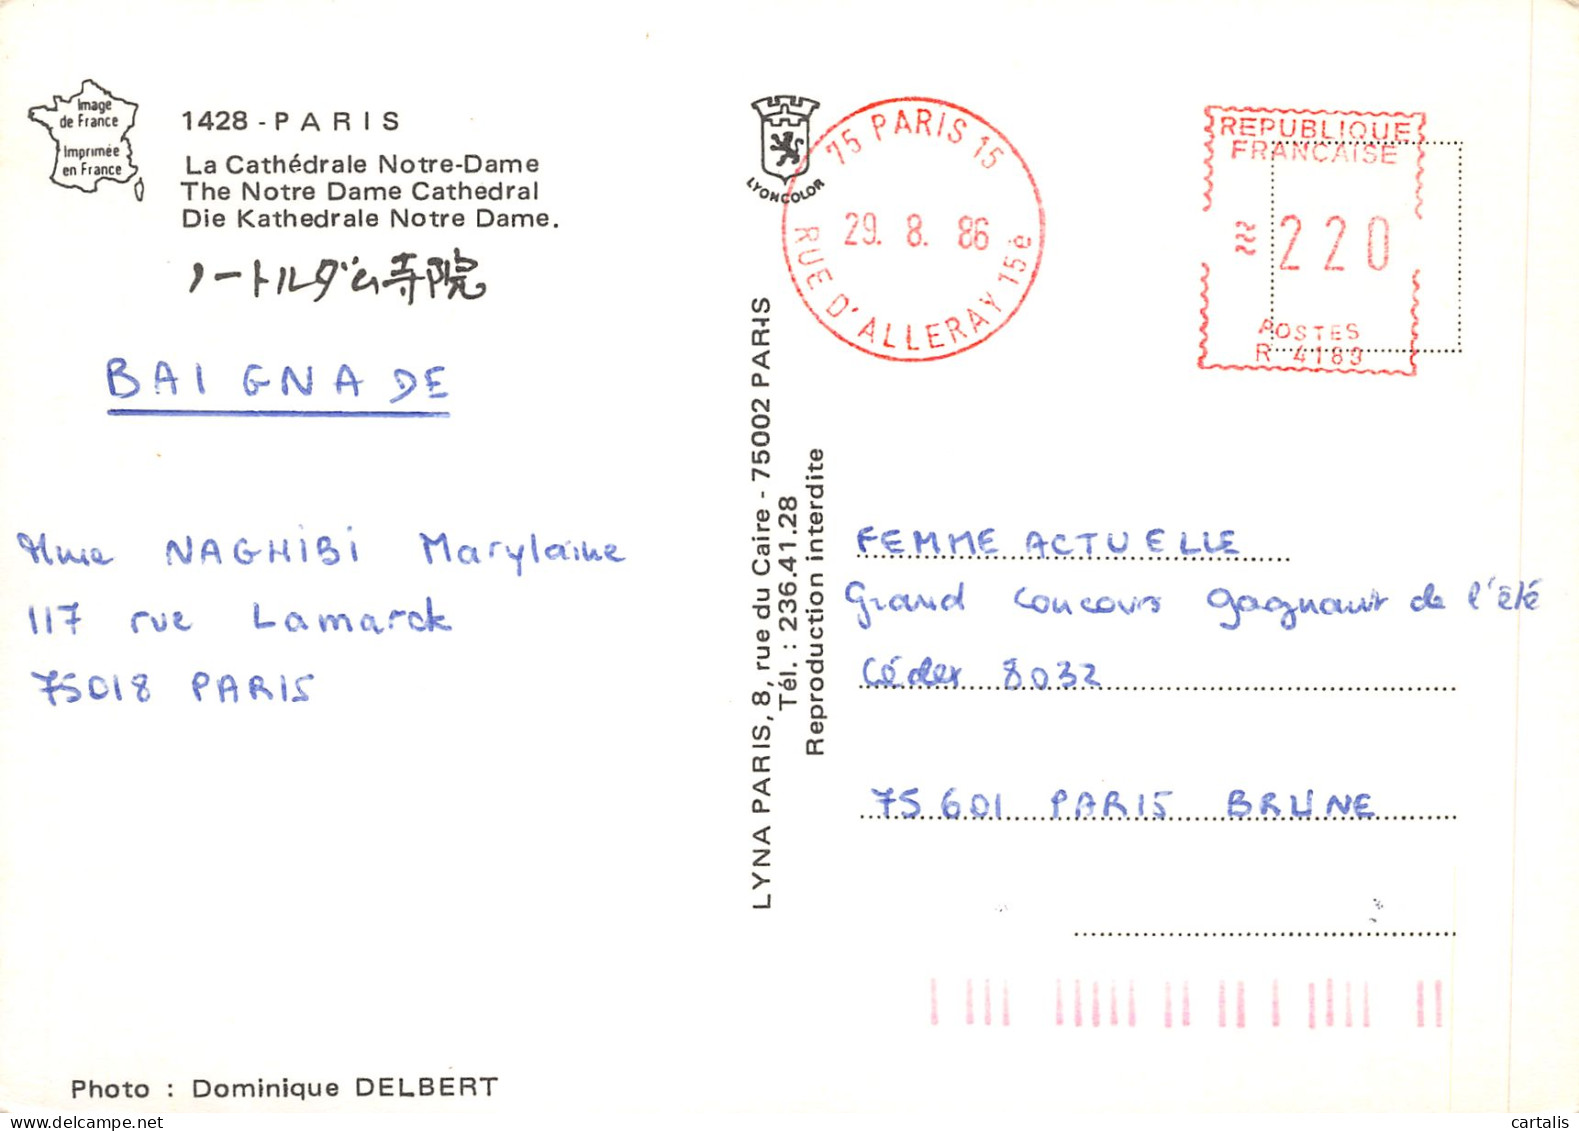 Image
de France
Imprimée
en France
1428 - PARIS
La Cathédrale Notre-Dame
The Notre Dame Cathedral
Die Kathedrale Notre Dame.
ノートルダム寺院
BAIGNADE
Mme NAGHIBI Marylaine
117 rue Lamarck
75018 PARIS
Photo : Dominique DELBERT
LYONCOLOR
LYNA PARIS, 8, rue du Caire - 75002 PARIS
Tél. : 236.41.28
Reproduction interdite
75 PARIS 15
29. 8. 86
RUE D'ALLERAY 15è
REPUBLIQUE
FRANCAISE
220
POSTES
R 4189
FEMME ACTUELLE
Grand concours gagnant de l'été
Cédex 8032
75601 PARIS BRUNE
cartalis